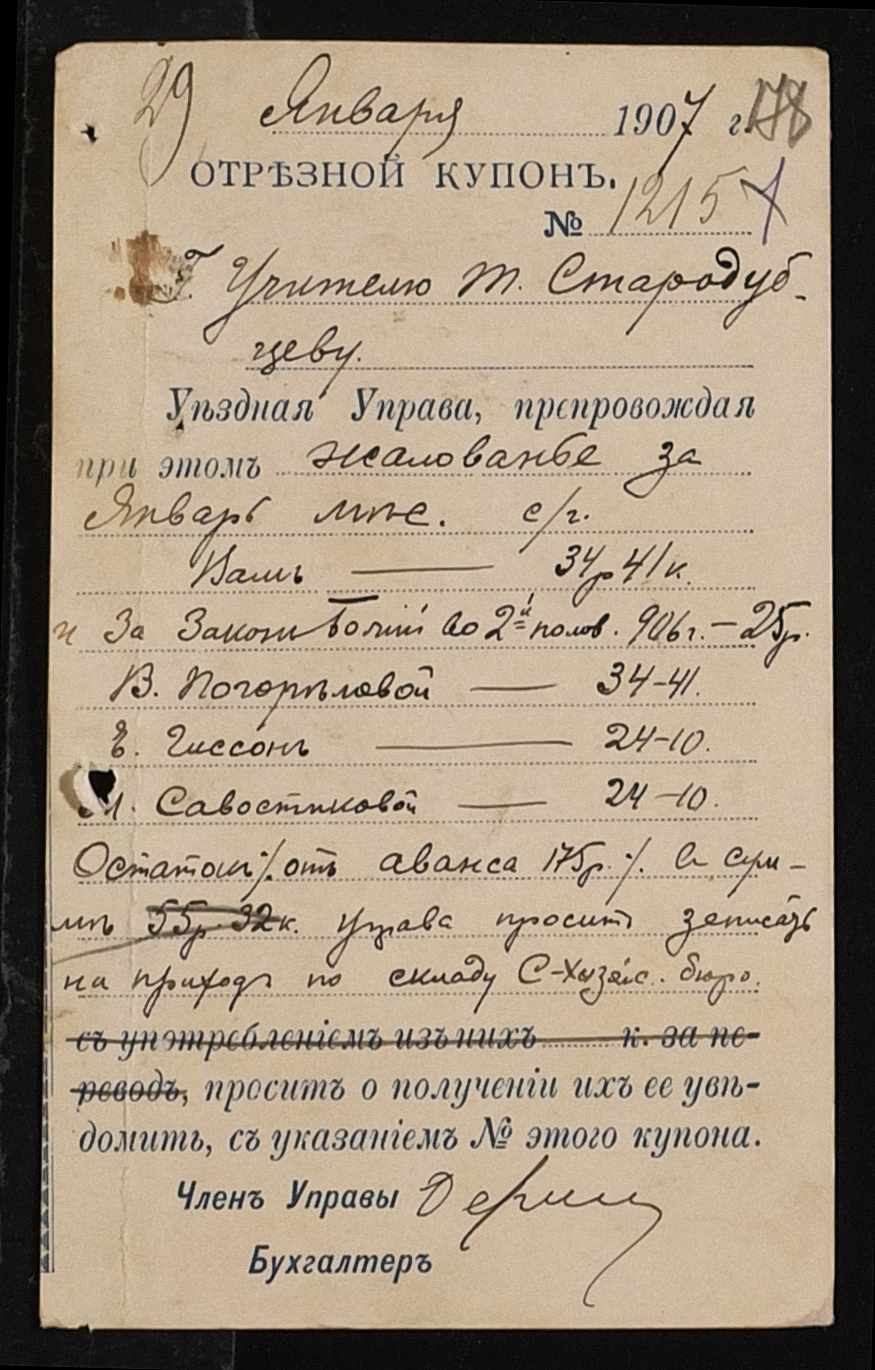 29 Января 1907 г. 178
ОТРѢЗНОЙ КУПОНЪ.
№ 1215
Г. Учителю Т. Стародуб-
цеву.
Уѣздная Управа, препровождая
при этомъ жалованье за
Январь мѣс. с/г.
Вамъ — 34р 41к.
и За Законъ Божій во 2й полов. 906г. — 25р.
В. Погорѣловой — 34-41.
Е. Гиссонъ — 24-10.
М. Савостиковой — 24-10.
Остатокъ ./. отъ аванса 175р. ./. въ сум-
мѣ 55р. 32к. управа проситъ записать
на приходъ по складу С-Хозяйс. бюро
съ употребленіемъ изъ нихъ к. за пе-
реводъ, проситъ о полученіи ихъ ее увѣ-
домить, съ указаніемъ № этого купона.
Членъ Управы
Бухгалтеръ